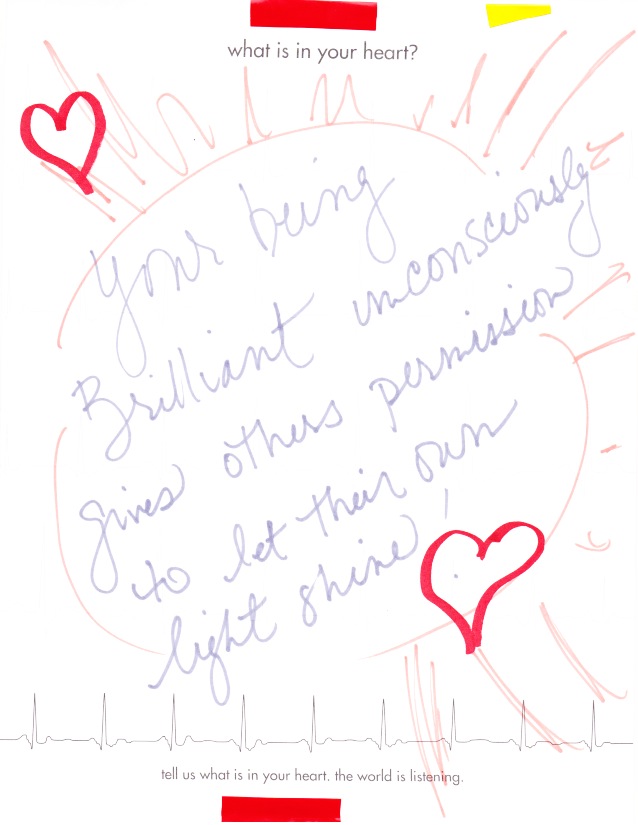 what is in your heart?
Your being
Brilliant unconsciously
gives others permission
to let their own
light shine!
tell us what is in your heart. the world is listening.